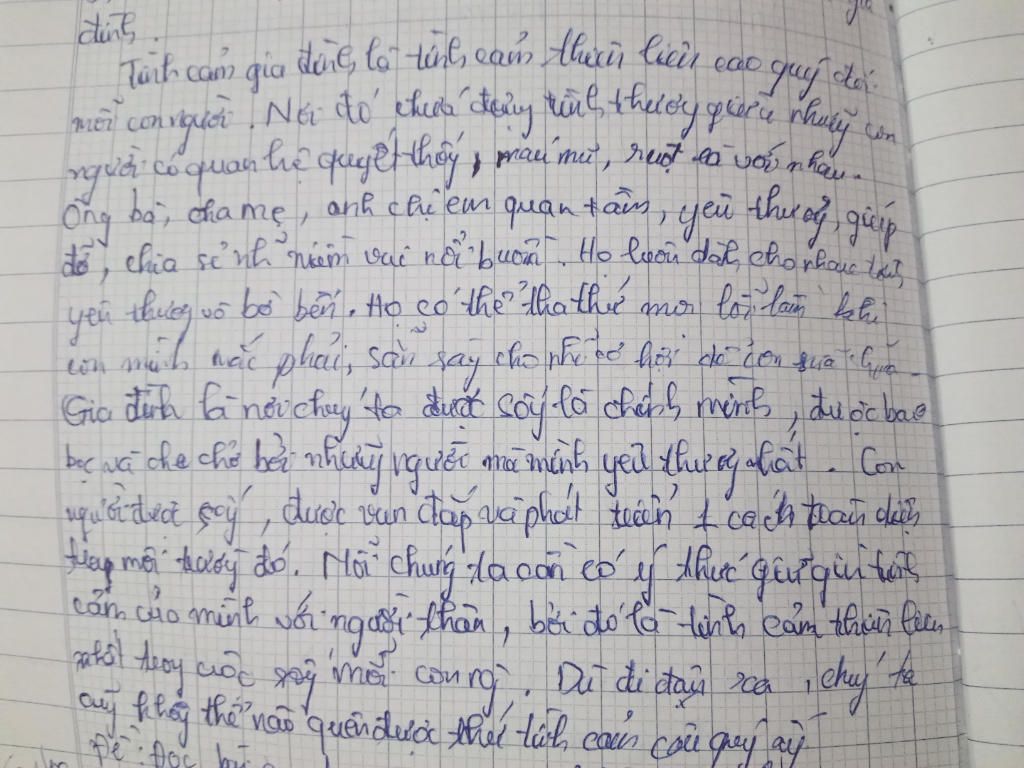 đình.
Tình cảm gia đình là tình cảm thiêng liêng cao quý đối
mỗi con người. Nơi đó chứa đựng tình thương giữa những con
người có quan hệ quyết thống, máu mủ, ruột rà với nhau.
Ông bà, cha mẹ, anh chị em quan tâm, yêu thương, giúp
đỡ, chia sẻ nh niềm vui nỗi buồn. Họ luôn dành cho nhau
yêu thương vô bờ bến. Họ có thể tha thứ mọi lỗi lầm khi
con mình mắc phải, sẵn sàng cho cơ hội để con
Gia đình là nơi chúng ta được sống là chính mình, được bao
bọc và che chở bởi những người mà mình yêu thương nhất. Con
người được sống, được vun đắp và phát triển 1 cách toàn diện
trong môi trường đó. Mỗi chúng ta cần có ý thức giữ gìn tình
cảm của mình với người thân, bởi đó là tình cảm thiêng liêng
nhất trong cuộc sống mỗi con ng. Dù đi đâu xa, chúng ta
cũng không thể nào quên được thứ tình cảm cao quý ấy
Đề: Đọc